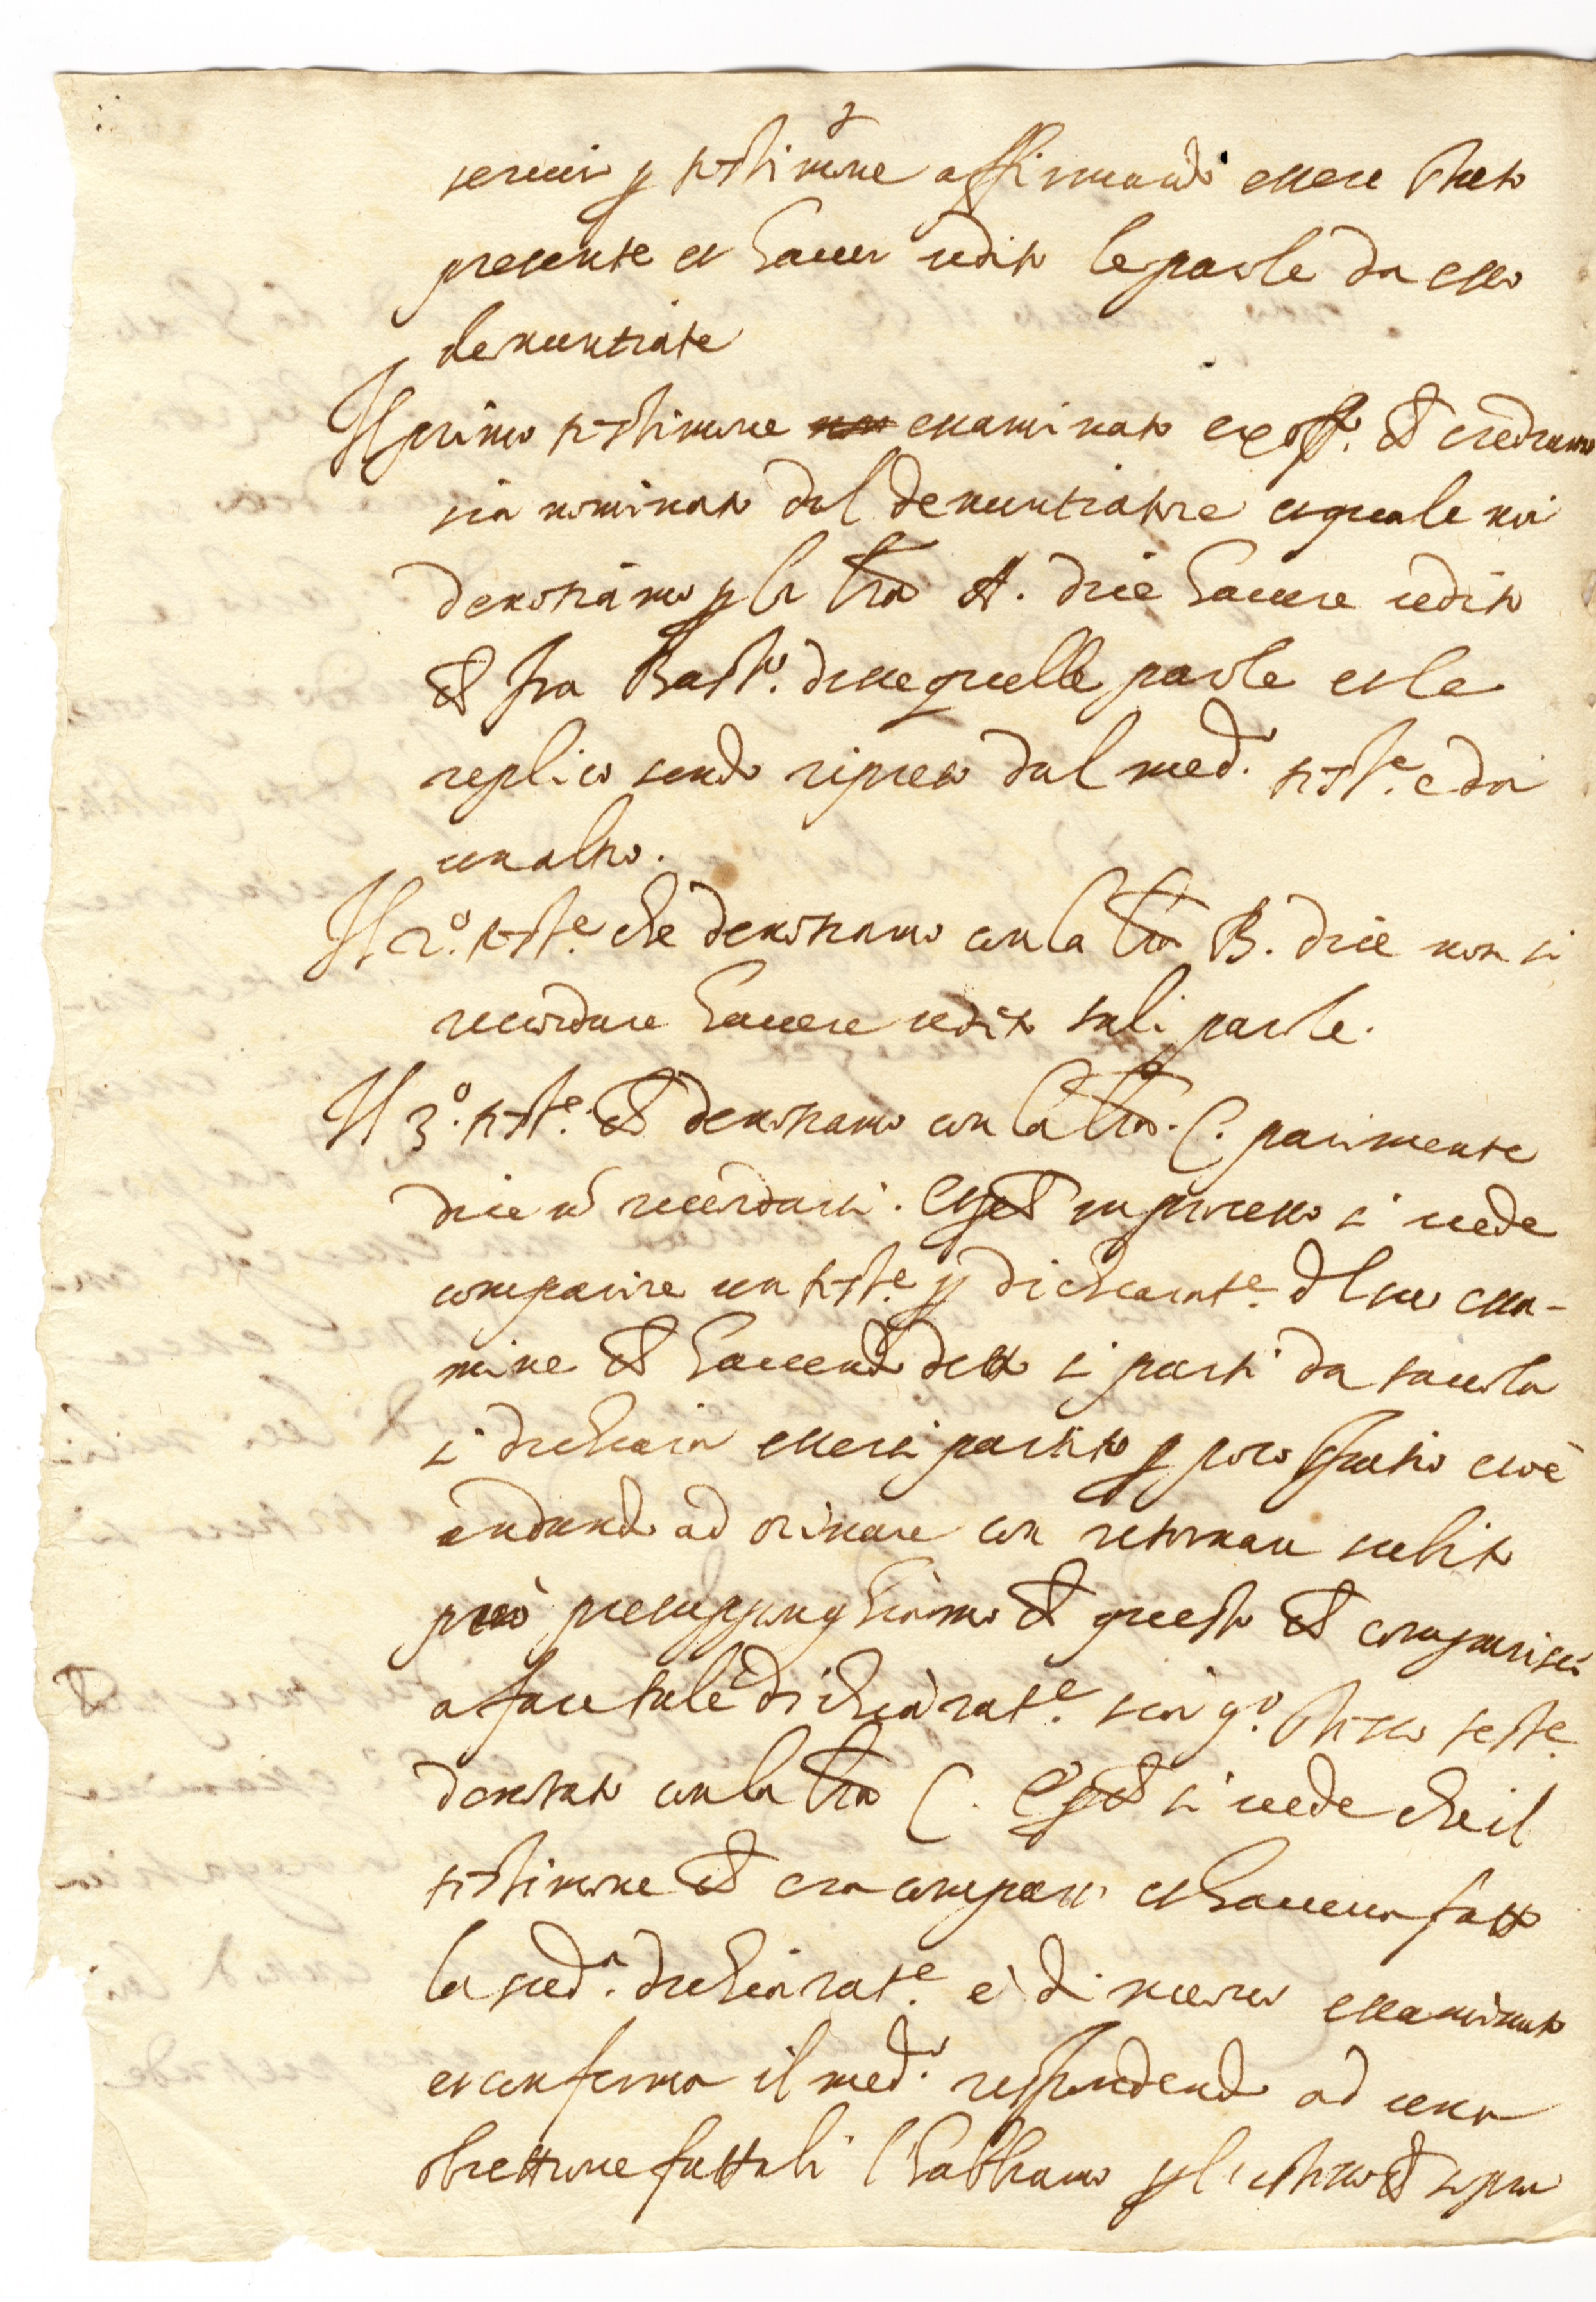 seruir p testimone affirmando essere stato
presente et hauer udito le parole da esso
denuntiate
Il primo testimone examinato ex off.º ch crediamo
sia nominato dal denuntiatore et quale noi
denotiamo p la lra A. dice hauere udito
ch fra Bast.º disse quelle parole et le
replico sendo ripreso dal med.º test.e e da
un altro.
Il 2.º test.e che denotiamo con la lra B. dice non si
recordare hauere udito tali parole.
Il 3.º test.e ch denotiamo con la lra. C. parimente
dice nō recordarsi. Et pch in processo si uede
comparire un test.e p dichiarat.e dl suo essa-
mine ch hauendo detto si parti da tauola
si dichiara essersi partito p poco spatio cioè
andando ad orinare con retornare subito
però presuppunghiamo ch questo ch comparisce
a fare tale dichiarat.e sia q.º stesso teste
denotato con la lra C. Et pch si uede che il
testimone ch era comparso et haueua fatto
la med.a dichiarat.e è di nuouo essaminato
et conferma il med.º respondendo ad una
obiettione fattali l'habbiamo p l'istesso ch sopra